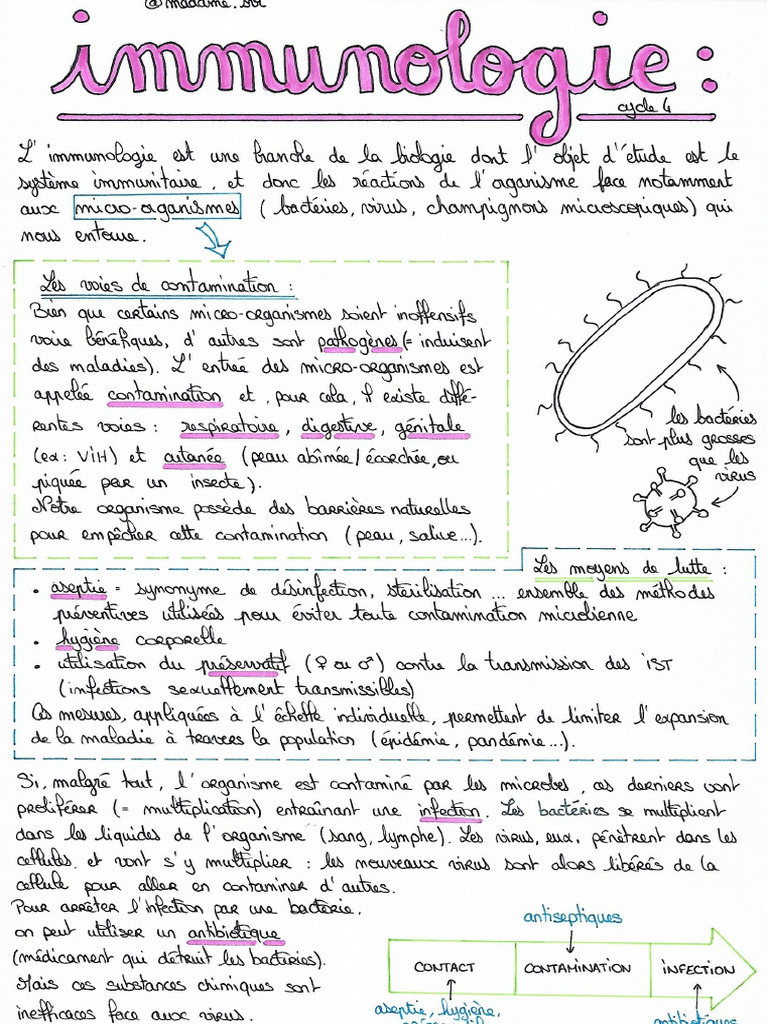 @madame.svt
immunologie :
cycle 4
L'immunologie est une branche de la biologie dont l'objet d'étude est le
système immunitaire, et donc les réactions de l'organisme face notamment
aux micro-organismes (bactéries, virus, champignons microscopiques) qui
nous entoure.
Les voies de contamination :
Bien que certains micro-organismes soient inoffensifs
voire bénéfiques, d'autres sont pathogènes (= induisent
des maladies). L'entrée des micro-organismes est
appelée contamination et, pour cela, il existe diffé-
rentes voies : respiratoire, digestive, génitale
(ex : VIH) et cutanée (peau abîmée/écorchée, ou
piquée par un insecte).
Notre organisme possède des barrières naturelles
pour empêcher cette contamination (peau, salive...).
les bactéries
sont plus grosses
que les
virus
Les moyens de lutte :
• aseptie = synonyme de désinfection, stérilisation ... ensemble des méthodes
préventives utilisées pour éviter toute contamination microbienne
• hygiène corporelle
• utilisation du préservatif (♀ ou ♂) contre la transmission des IST
(infections sexuellement transmissibles)
Ces mesures, appliquées à l'échelle individuelle, permettent de limiter l'expansion
de la maladie à travers la population (épidémie, pandémie...).
Si, malgré tout, l'organisme est contaminé par les microbes, ces derniers vont
proliférer (= multiplication) entraînant une infection. Les bactéries se multiplient
dans les liquides de l'organisme (sang, lymphe). Les virus, eux, pénètrent dans les
cellules et vont s'y multiplier : les nouveaux virus sont alors libérés de la
cellule pour aller en contaminer d'autres.
Pour arrêter l'infection par une bactérie,
on peut utiliser un antibiotique
(médicament qui détruit les bactéries).
Mais ces substances chimiques sont
inefficaces face aux virus.
antiseptiques
CONTACT
CONTAMINATION
INFECTION
aseptie, hygiène,
antibiotiques